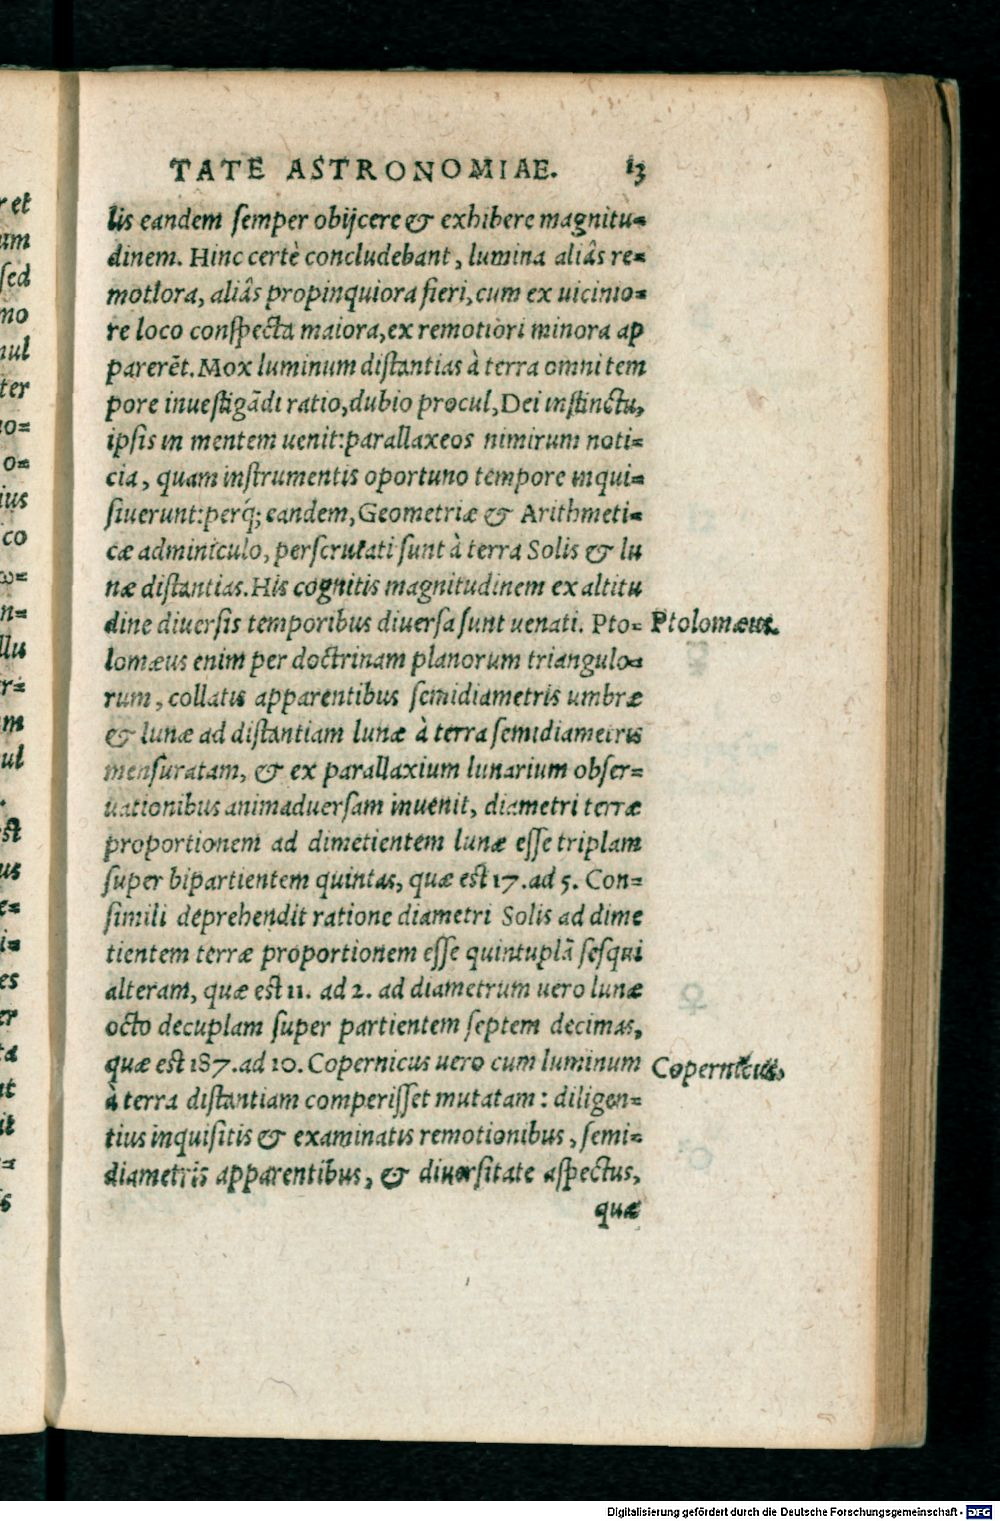 TATE ASTRONOMIAE. 13
lis eandem semper obijcere & exhibere magnitu=
dinem. Hinc certè concludebant, lumina aliâs re=
motiora, aliâs propinquiora fieri, cum ex uicinio=
re loco conspecta maiora, ex remotiori minora ap
parerẽt. Mox luminum distantias à terra omni tem
pore inuestigãdi ratio, dubio procul, Dei instinctu,
ipsis in mentem uenit: parallaxeos nimirum noti=
cia, quam instrumentis oportuno tempore inqui=
siuerunt: perq́; eandem, Geometriæ & Arithmeti=
cæ adminiculo, perscrutati sunt à terra Solis & lu
næ distantias. His cognitis magnitudinem ex altitu
dine diuersis temporibus diuersa sunt uenati. Pto=
Ptolomæus.
lomæus enim per doctrinam planorum triangulo=
rum, collatis apparentibus semidiametris umbræ
& lunæ ad distantiam lunæ à terra semidiametris
mensuratam, & ex parallaxium lunarium obser=
uationibus animaduersam inuenit, diametri terræ
proportionem ad dimetientem lunæ esse triplam
super bipartientem quintas, quæ est 17. ad 5. Con=
simili deprehendit ratione diametri Solis ad dime
tientem terræ proportionem esse quintuplã sesqui
alteram, quæ est 11. ad 2. ad diametrum uero lunæ
octo decuplam super partientem septem decimas,
quæ est 187. ad 10. Copernicus uero cum luminum
Copernicus.
à terra distantiam comperisset mutatam: diligen=
tius inquisitis & examinatis remotionibus, semi=
diametris apparentibus, & diuersitate aspectus,
quæ
r et
um
sed
mo
nul
ter
uo=
o=
ius
co
ω=
n=
llu
r=
m
ul
.
est
us
e=
i=
es
er
ta
ut
it
=
s
Digitalisierung gefördert durch die Deutsche Forschungsgemeinschaft - DFG